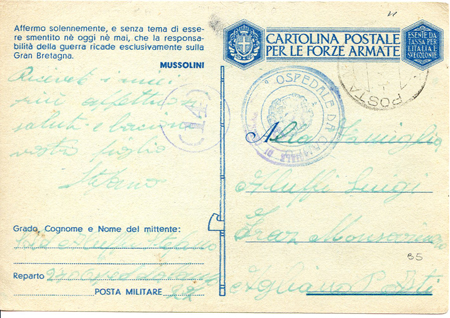 Affermo solennemente, e senza tema di esse-
re smentito nè oggi nè mai, che la responsa-
bilità della guerra ricade esclusivamente sulla
Gran Bretagna.
MUSSOLINI
CARTOLINA POSTALE
PER LE FORZE ARMATE
ESENTE DA
TASSA PER
L'ITALIA E
SVE COLONIE
POSTA
OSPEDALE DA CAMPO
Ricevete i miei
più affettuosi
saluti e bacioni
vostro figlio
Stefano
Alla Famiglia
Aluffi Luigi
Fraz
Agliano Asti
85
Grado, Cognome e Nome del mittente:
Aluffi Stefano
Reparto
POSTA MILITARE